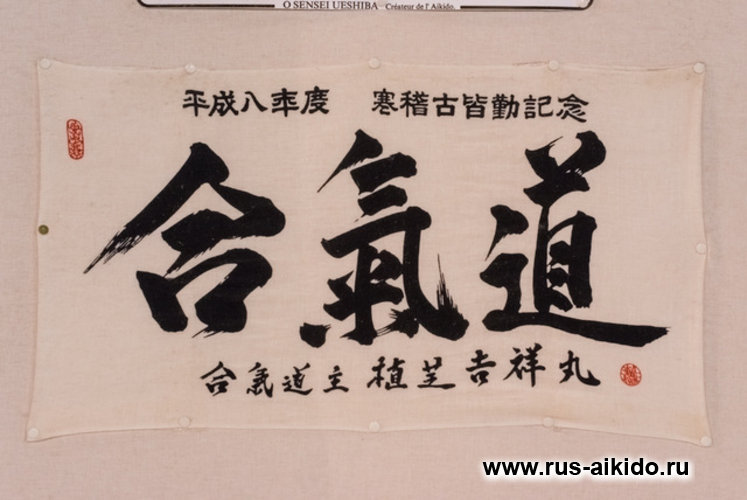 O SENSEI UESHIBA Créateur de l' Aïkido.
平成八年度 寒稽古皆勤記念
合氣道
合氣道主 植芝吉祥丸
www.rus-aikido.ru